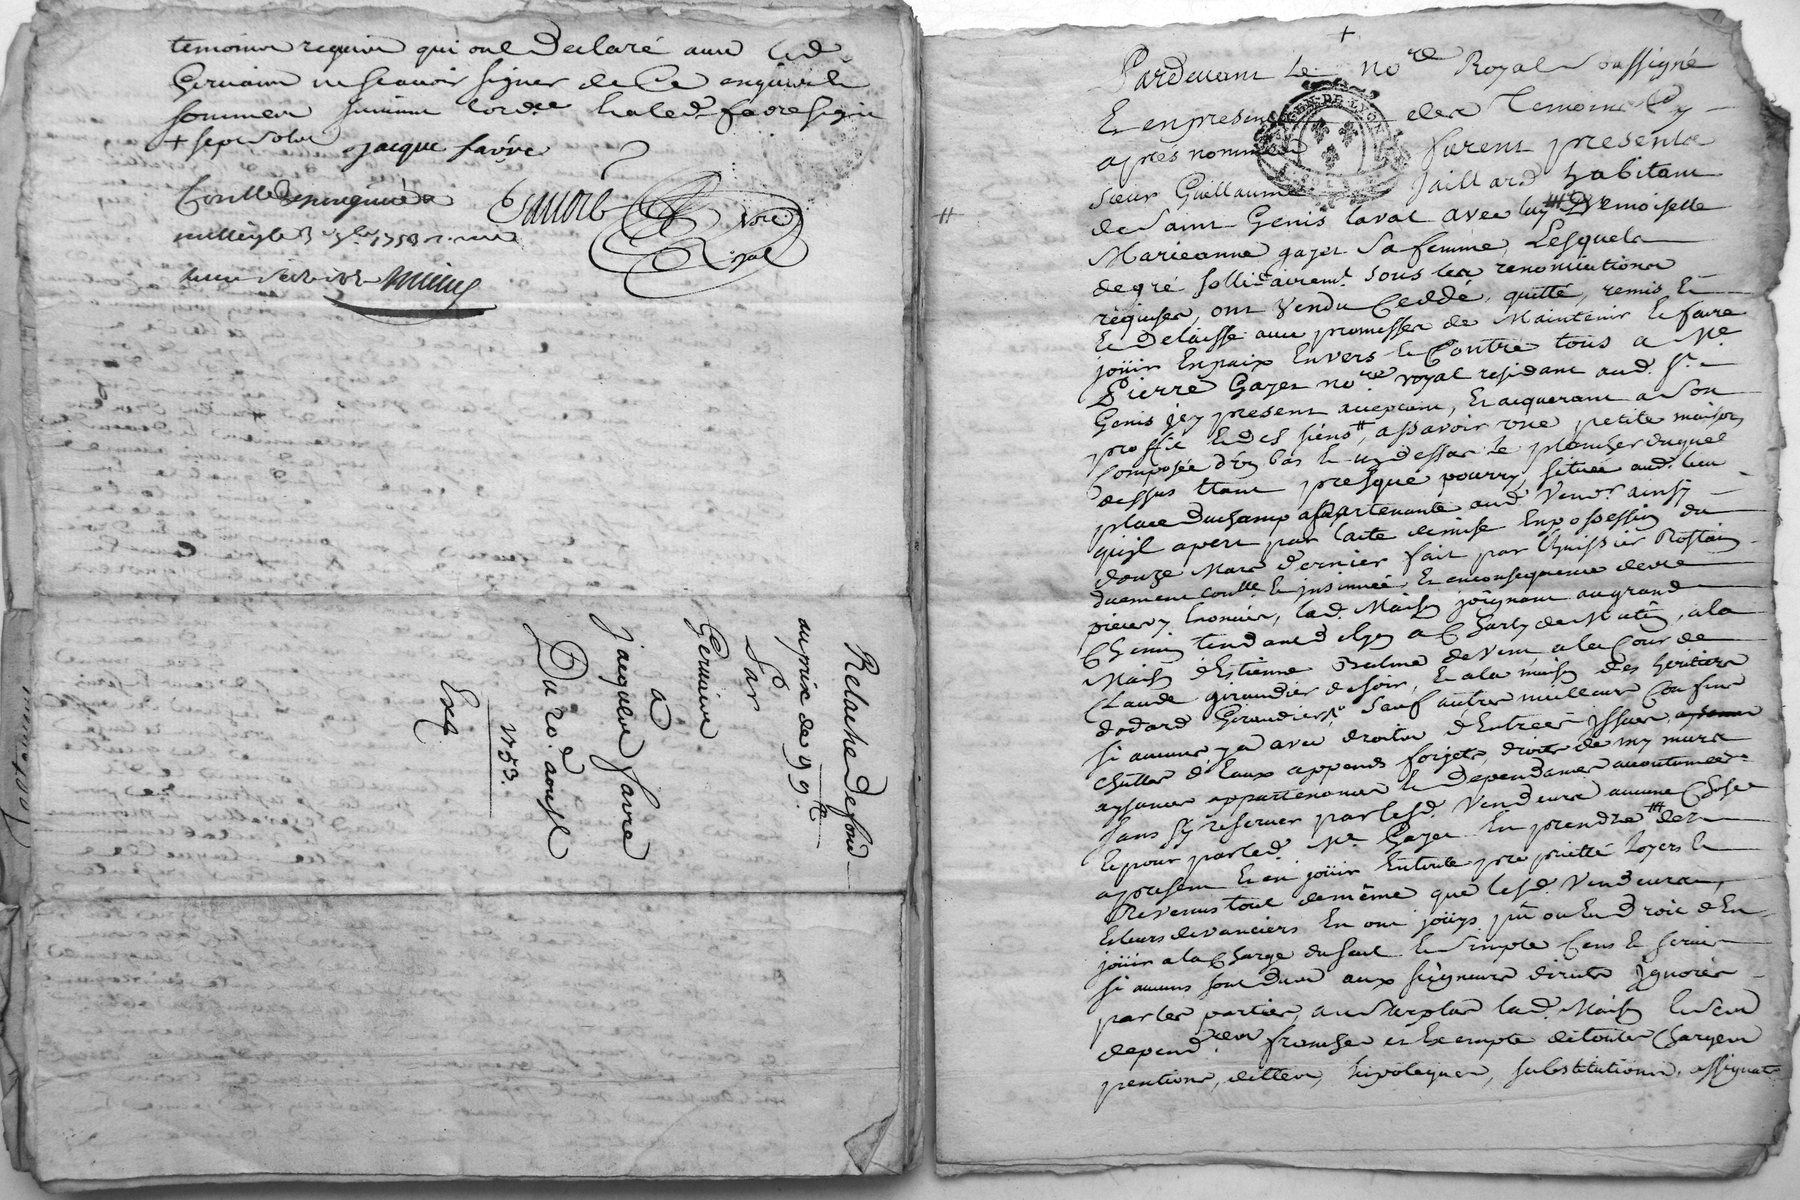 temoins requis qui ont declaré avec led.
Germain ne scavoir signer de ce enquis et
sommes suivant lord.ce la led. favre signé
+ sept solz
jacque favre
Nore
Royal
Relache de fond
au prix de 99.
Par
Germain
a
jacques favre
Du 20.d aoust
1753.
Exp.
+
Pardevant Le No.re Royal Soussigné
Et en presence des Temoins cy
après nommés furent presents
sieur Guillaume Jaillard habitant
de Saint Genis laval avec luy Demoiselle
Marieanne gayet Sa femme, Lesquels
de gré sollidairem.t sous les renonciations
requises, ont vendu Ceddé, quitté, remis Et
Et Delaissé avec promesses de Maintenir Et faire
joüir En paix Envers Et Contre tous a M.e
Pierre Gayet no.re royal residant aud. S.t
Genis jcy present acceptant, Et acquerant a Son
proffit Et des siens, assavoir une petite maison
Composée d'un bas Et un dessus Le plancher duquel
dessus Etant presque pourry, située aud. lieu
place Duchamp appartenante aud. Vend.r ainsy
qu'jl apert par l'acte de mise En possession du
douze Mars Dernier fait par l'huissier Rostain
duement Con.llé Et jnsinuée Et en consequence de
lad. Maison joignant au grand
Chemin tendant de Lyon a Charly de Matin, a la
Maison d'Estienne Balme de vent, a la Cour de
Claude giraudier de soir, Et a la maison des heritiers
dodard Giraudier, Sauf autres meilleurs Confins
si aucuns y a avec droits d'Entrées jssues,
chuttes d'Eaux appends forjets, droits de my murs
aysances appartenances Et Dependances accoutumées
Sans s'y reserver par lesd. Vendeurs aucune Chose
Et pour par led. M.e Gayet En prendre des
apresent Et en joüir En toute proprietté loyers Et
Revenus tout de même que lesd. Vendeurs,
Et leurs devanciers En ont joüys pû ou Eu Droit d'En
joüir a la Charge du seul Et Simple Cens Et servis
si aucuns sont dus aux seigneurs directs jgnorés
par les parties, au surplus lad. Maison Et Ses
depend.ces franches et Exempte de toutes Charges
pentions, dettes, hipoteques, substitutions, assignats